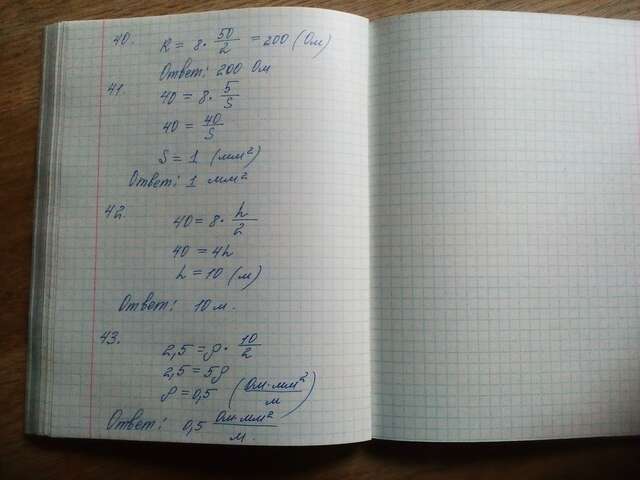 40. R = 8 · 50/2 = 200 (Ом)
Ответ: 200 Ом
41. 40 = 8 · 5/S
40 = 40/S
S = 1 (мм²)
Ответ: 1 мм²
42. 40 = 8 · h/2
40 = 4h
h = 10 (м)
Ответ: 10 м.
43. 2,5 = ρ · 10/2
2,5 = 5ρ
ρ = 0,5 (Ом·мм²/м)
Ответ: 0,5 Ом·мм²/м.